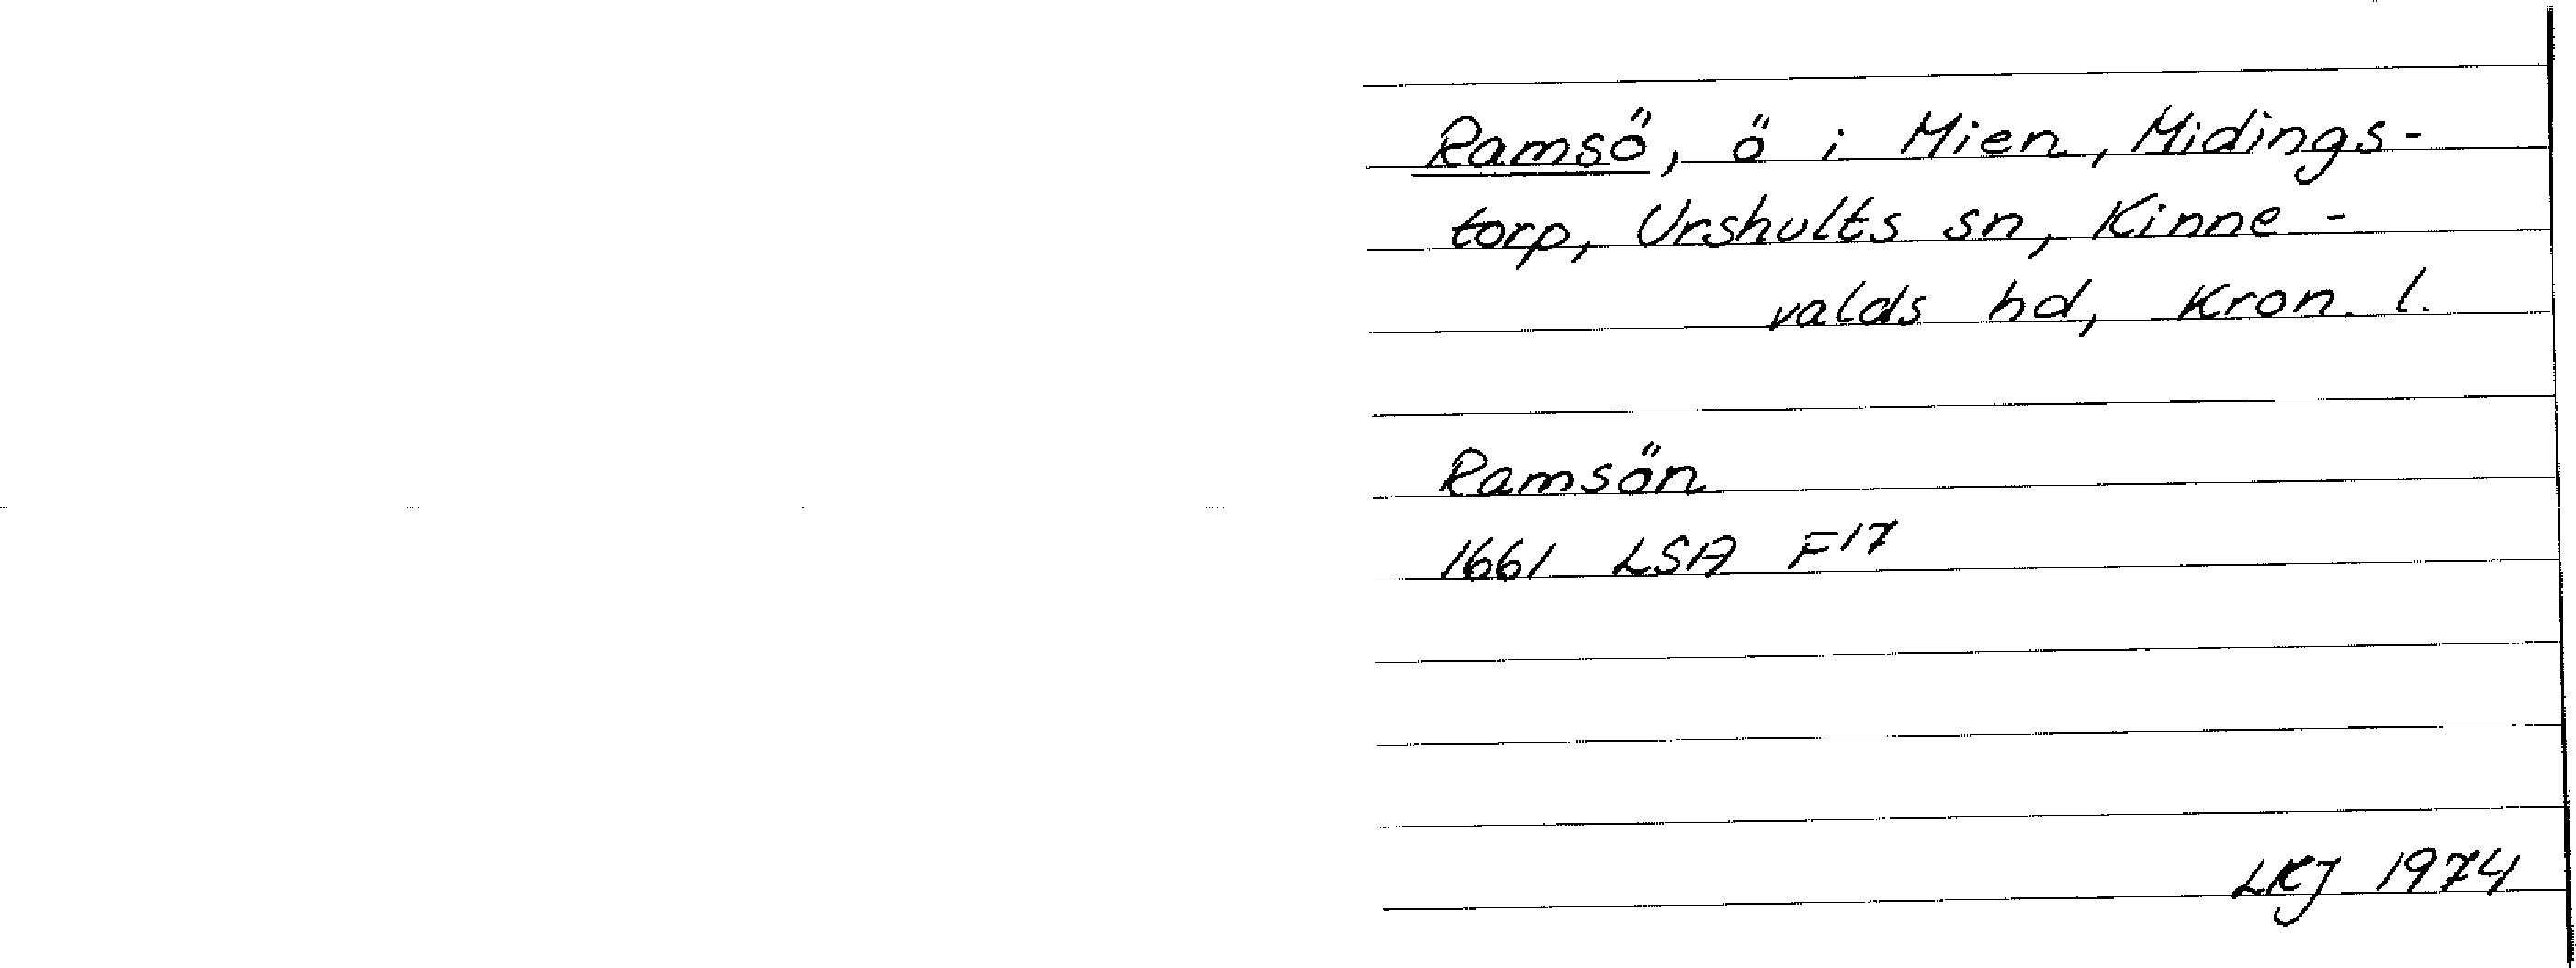 Ramsö, ö i Mien, Midings-
torp, Urshults sn, Kinne-
valds hd, Kron. l.
Ramsön
1661 LSA F17
LKJ 1974